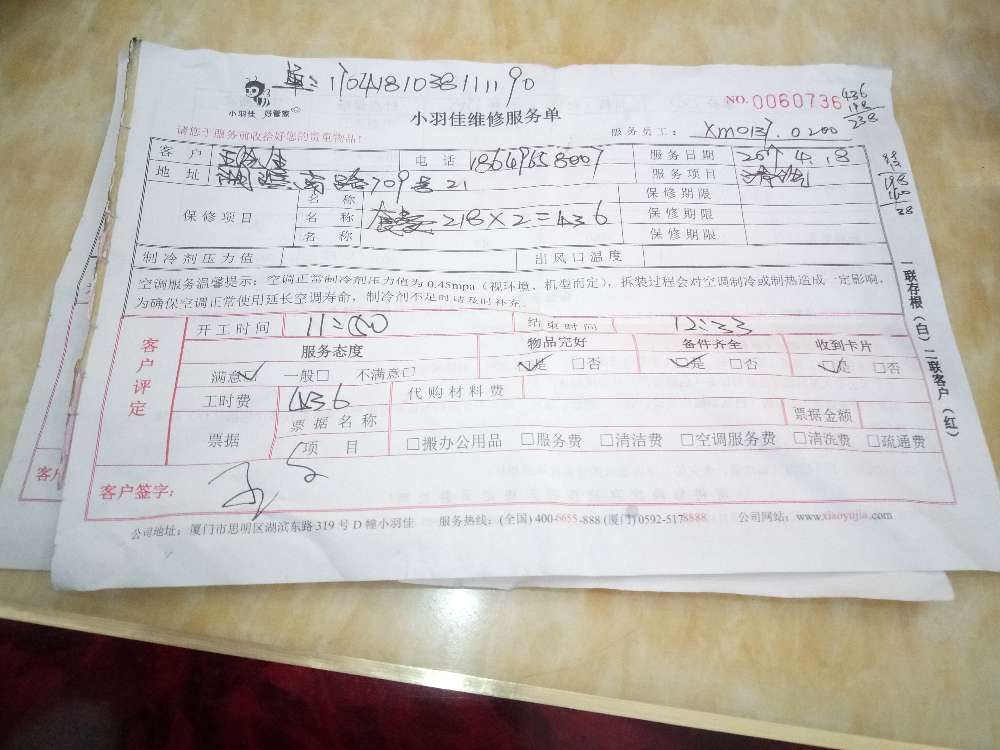 单: 170418103811190
小羽佳 好管家
小羽佳维修服务单
NO. 0060736
436
198
238
请您于服务前收拾好您的贵重物品!
服务员工: XM0137.0200
客户
电话 18649658007
服务日期 2017 4.18
地址 南路709号21
服务项目 清洗
保修项目
名称
保修期限
名称 218X2=436
保修期限
名称
保修期限
198
160
38
制冷剂压力值
出风口温度
空调服务温馨提示: 空调正常制冷剂压力值为 0.45mpa (视环境、机型而定), 拆装过程会对空调制冷或制热造成一定影响,
为确保空调正常使用延长空调寿命, 制冷剂不足时请及时补充。
一联存根(白) 二联客户(红)
客户评定
开工时间 11:00
结束时间 12:33
服务态度 物品完好 备件齐全 收到卡片
满意☑ 一般□ 不满意□ ☑是 □否 ☑是 □否 ☑是 □否
工时费 436 代购材料费
票据 票据名称 票据金额
项目 □搬办公用品 □服务费 □清洁费 □空调服务费 □清洗费 □疏通费
客户签字:
公司地址: 厦门市思明区湖滨东路 319 号 D 幢小羽佳 服务热线: (全国) 400-6655-888 (厦门) 0592-5178888 公司网站: www.xiaoyujia.com
客户